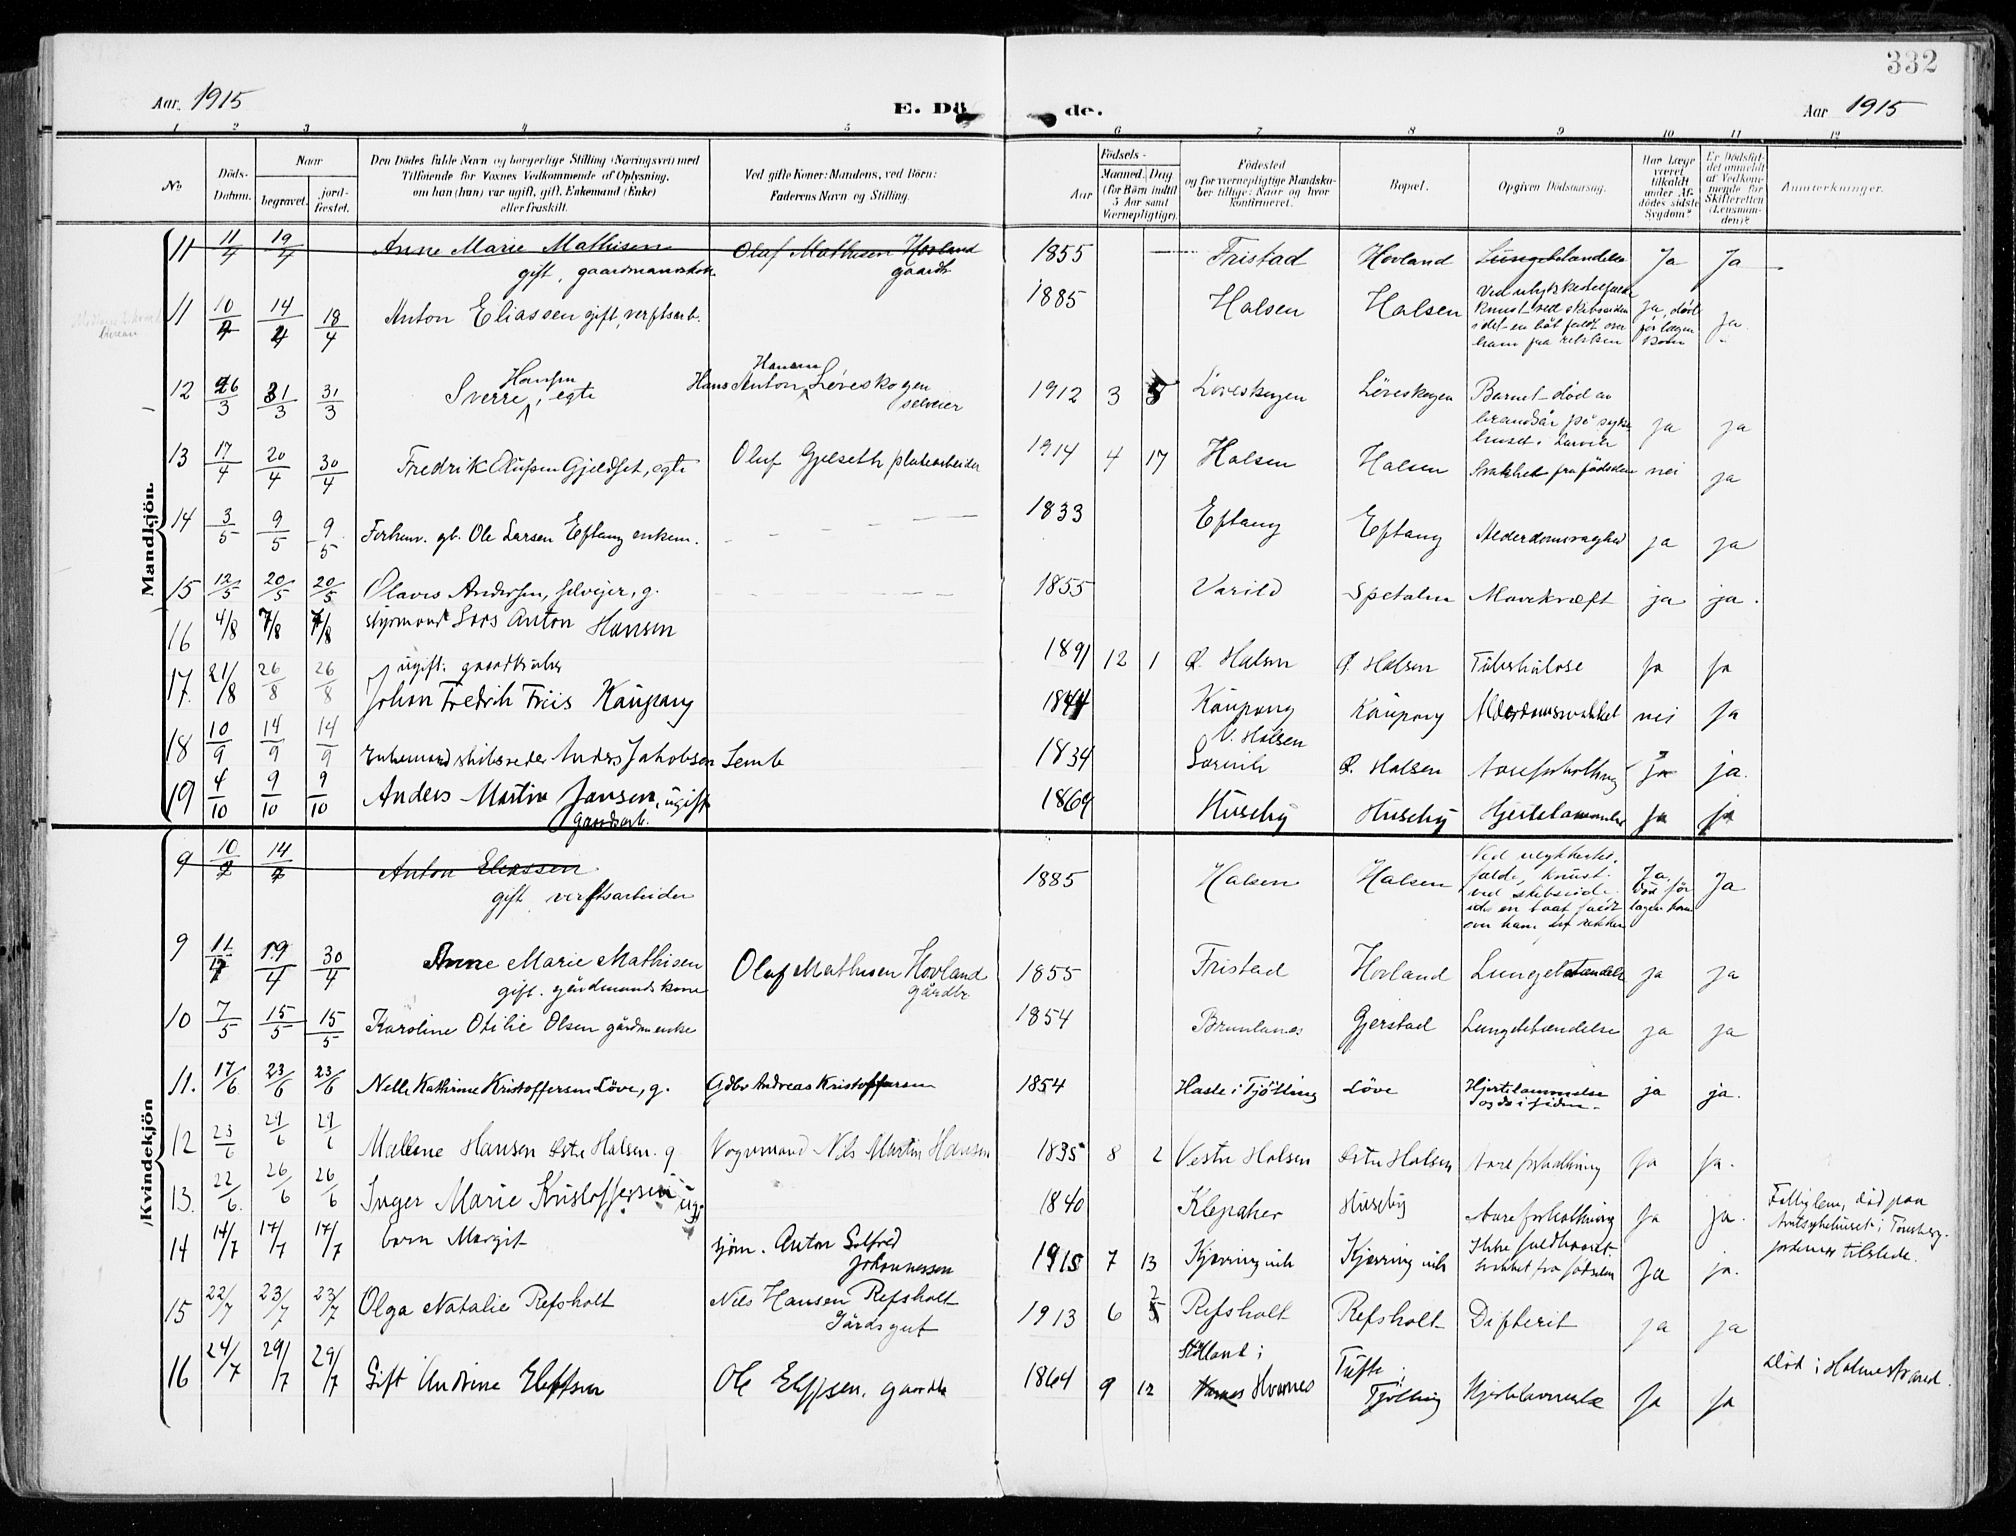 332
Aar 1915 E. Dö de. Aar 1915
1 2 3 4 5 6 7 8 9 10 11 12
No Döds-Datum. Naar begravet. jord-fæstet. Den Dödes fulde Navn og borgerlige Stilling (Næringsvei) med Tilføiende for Voxnes Vedkommende af Oplysning, om han (hun) var ugift, gift, Enkemand (Enke) eller fraskilt. Ved gifte Koner: Mandens, ved Börn: Faderens Navn og Stilling. Födsels- Aar Maaned. Dag (for Börn indtil 5 Aar samt Værnepligtige). Födested og for værnepligtige Mandskaber tillige: Naar og hvor konfirmeret. Bopæl. Opgiven Dödsaarsag. Har Læge været tilkaldt under Afdödes sidste Sygdom? Er Dödsfaldet anmeldt af Vedkommende for Skifteretten (Lensmanden)? Anmærkninger.
Mandkjön.
11 11/4 19/4 Anne Marie Mathisen gift, gaardmandskone Olaf Mathisen Hovland gaardbr 1855 Fristad Hovland Lungebetændelse Ja Ja
11 10/4 14/4 18/4 Anton Eliassen gift, verftsarb. 1885 Halsen Halsen Ved ulykkestilfælde knust ved skibssiden idet en båt faldt over ham fra rekken Ja, død før lægen kom Ja
12 26/3 31/3 31/3 Sverre Hansen, egte Hans Anton Hansen Løveskogen selveier 1912 3 5 Løveskogen Løveskogen Barnet død av brandsår på sykehuset i Larvik ja ja
13 17/4 20/4 30/4 Fredrik Olufsen Gjeldset, egte Oluf Gjelseth platearbeider 1914 4 17 Halsen Halsen Svakhed fra fødselen nei ja
14 3/5 9/5 9/5 Forhenv. gb. Ole Larsen Eftang enkem. 1833 Eftang Eftang Alderdomsvaghed ja ja
15 12/5 20/5 20/5 Olaves Andersen, selveier, g. 1855 Varild Spetalen Mavekræft ja ja.
16 4/8 7/8 7/8 styrmand Lars Anton Hansen 1891 12 1 Ø. Halsen Ø. Halsen Tuberkulose Ja Ja
17. 21/8 26/8 26/8 ugift. gaardbruker Johan Fredrik Friis Kaupang 1844 Kaupang Kaupang Alderdomssvakhet nei Ja
18 10/9 14/9 14/9 Enkemand skibsreder Anders Jakobsen Semb 1834 V. Halsen Larvik Ø. Halsen Aareforkalkning Ja ja.
19 4/10 9/10 9/10 Anders Martin Jansen, ugift Gaardsarb. 1869 Huseby Huseby Hjertelammelse Ja ja
Kvindekjön
9 10/4 14/4 Anton Eliassen gift verftsarbeider 1885 Halsen Halsen Ved ulykkestilfælde, knust ved skibsside idet en baat faldt over ham fra rekken Ja, Død før lægen kom Ja
9 11/4 19/4 30/4 Anne Marie Mathisen gift. gårdmandskone Olaf Mathisen Hovland gårdbr. 1855 Fristad Hovland Lungebetændelse ja ja
10 7/5 15/5 15/5 Karoline Otilie Olsen gårdm enke 1854 Brunlanes Gjerstad Lungebetændelse ja ja
11. 17/6 23/6 23/6 Nelle Kathrine Kristoffersen Löve, g. Gdbr Andreas Kristoffersen 1854 Hasle i Tjølling Löve Hjertelammelse ja ja.
12 23/6 29/6 29/6 Malene Hansen Østre Halsen. g Vognmand Nils Martin Hansen 1835 8 2 Vestre Halsen Østre Halsen Aareforkalkning Ja Ja.
13. 22/6. 26/6 26/6 Inger Marie Kristoffersen ug. 1840 Klepaker Huseby Aareforkalkning Ja ja. Fattiglem, død paa Amtsykehuset i Tønsberg. jordmor tilstede.
14 14/7 17/7 17/7 barn Margit sjøm. Anton Solfred Johannessen 1915 7 13 Kjærringvik Kjærringvik Ikke fuldbaaret. Svakhet fra fødselen Ja ja.
15 22/7 23/7 23/7 Olga Natalie Refsholt Nils Hansen Refsholt Gårdsgut 1913 6 2 Refsholt Refsholt Difterit ja ja
16 24/7 29/7 29/7 Gift Andrine Ellefsen Ole Ellefsen, gaardbr 1864 9 12 Hvarnes Tufte i Tjølling Hjertelammelse Ja Ja Død i Holmestrand.